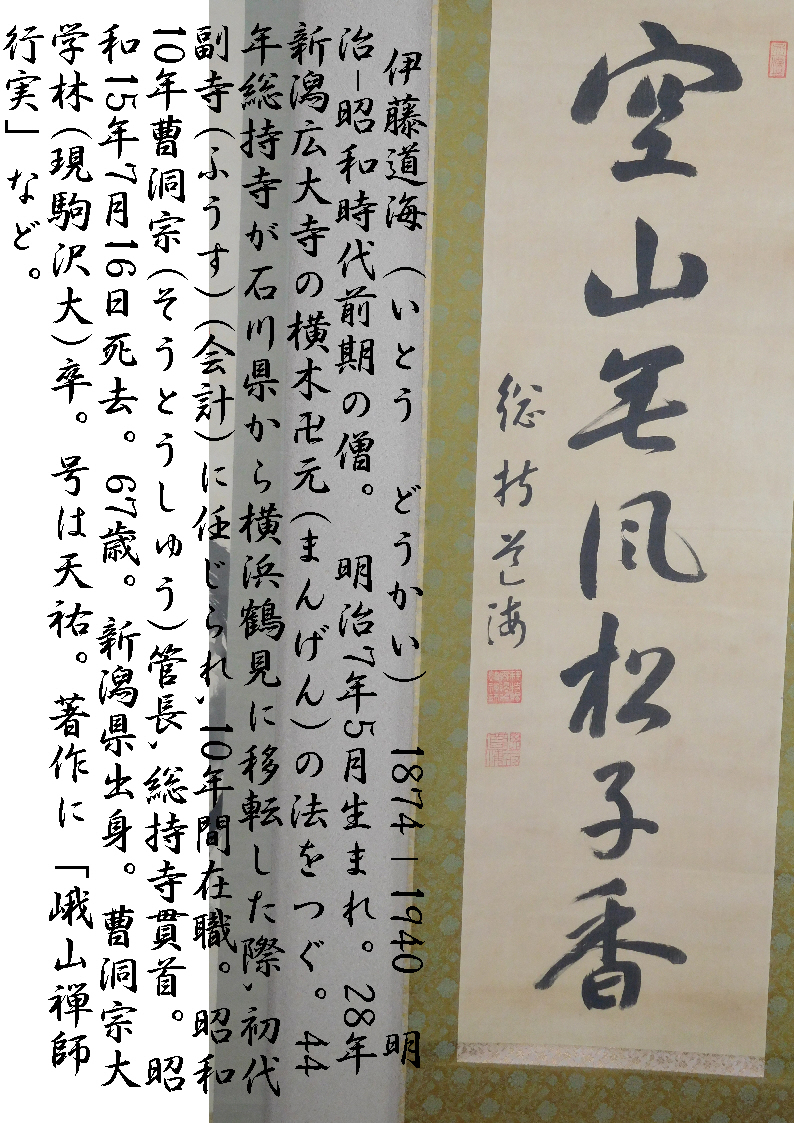 空山無風松子香
総持道海
伊藤道海 (いとう どうかい) 1874-1940 明
治-昭和時代前期の僧。 明治7年5月生まれ。28年
新潟広大寺の横木卍元(まんげん)の法をつぐ。44
年総持寺が石川県から横浜鶴見に移転した際、初代
副寺(ふうす)(会計)に任じられ、10年間在職。昭和
10年曹洞宗(そうとうしゅう)管長、総持寺貫首。昭
和15年7月16日死去。67歳。新潟県出身。曹洞宗大
学林(現駒沢大)卒。号は天祐。著作に「峨山禅師
行実」など。